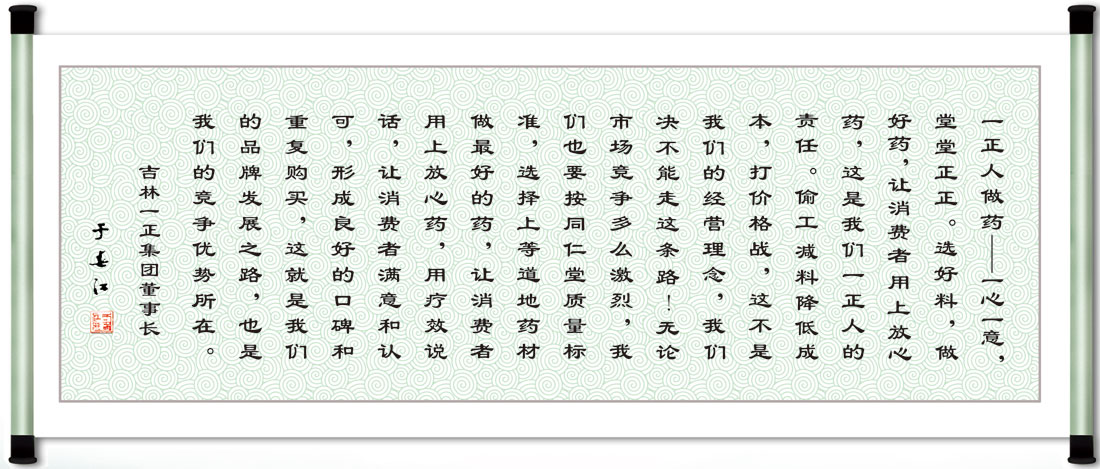 一正人做药——一心一意，
堂堂正正。选好料，做
好药，让消费者用上放心
药，这是我们一正人的
责任。偷工减料降低成
本，打价格战，这不是
我们的经营理念，我们
决不能走这条路！无论
市场竞争多么激烈，我
们也要按同仁堂质量标
准，选择上等道地药材
做最好的药，让消费者
用上放心药，用疗效说
话，让消费者满意和认
可，形成良好的口碑和
重复购买，这就是我们
的品牌发展之路，也是
我们的竞争优势所在。
吉林一正集团董事长